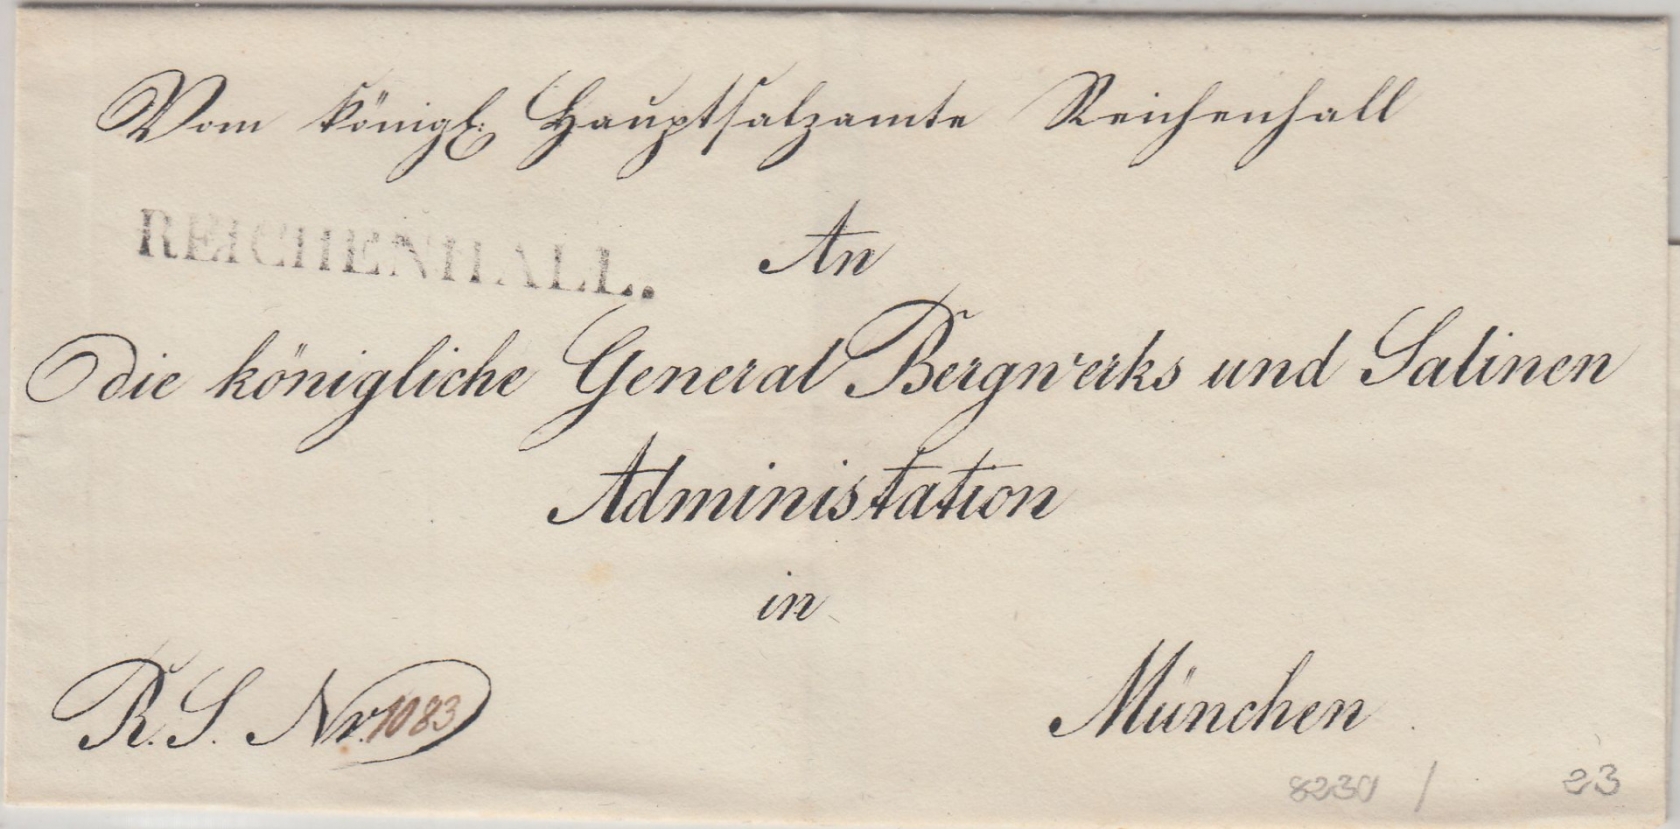 Vom königl: Hauptsalzamte Reichenhall
REICHENHALL.
An
die königliche General Bergwerks und Salinen
Administation
in
München
R. S. Nr. 1083
8230 / 23